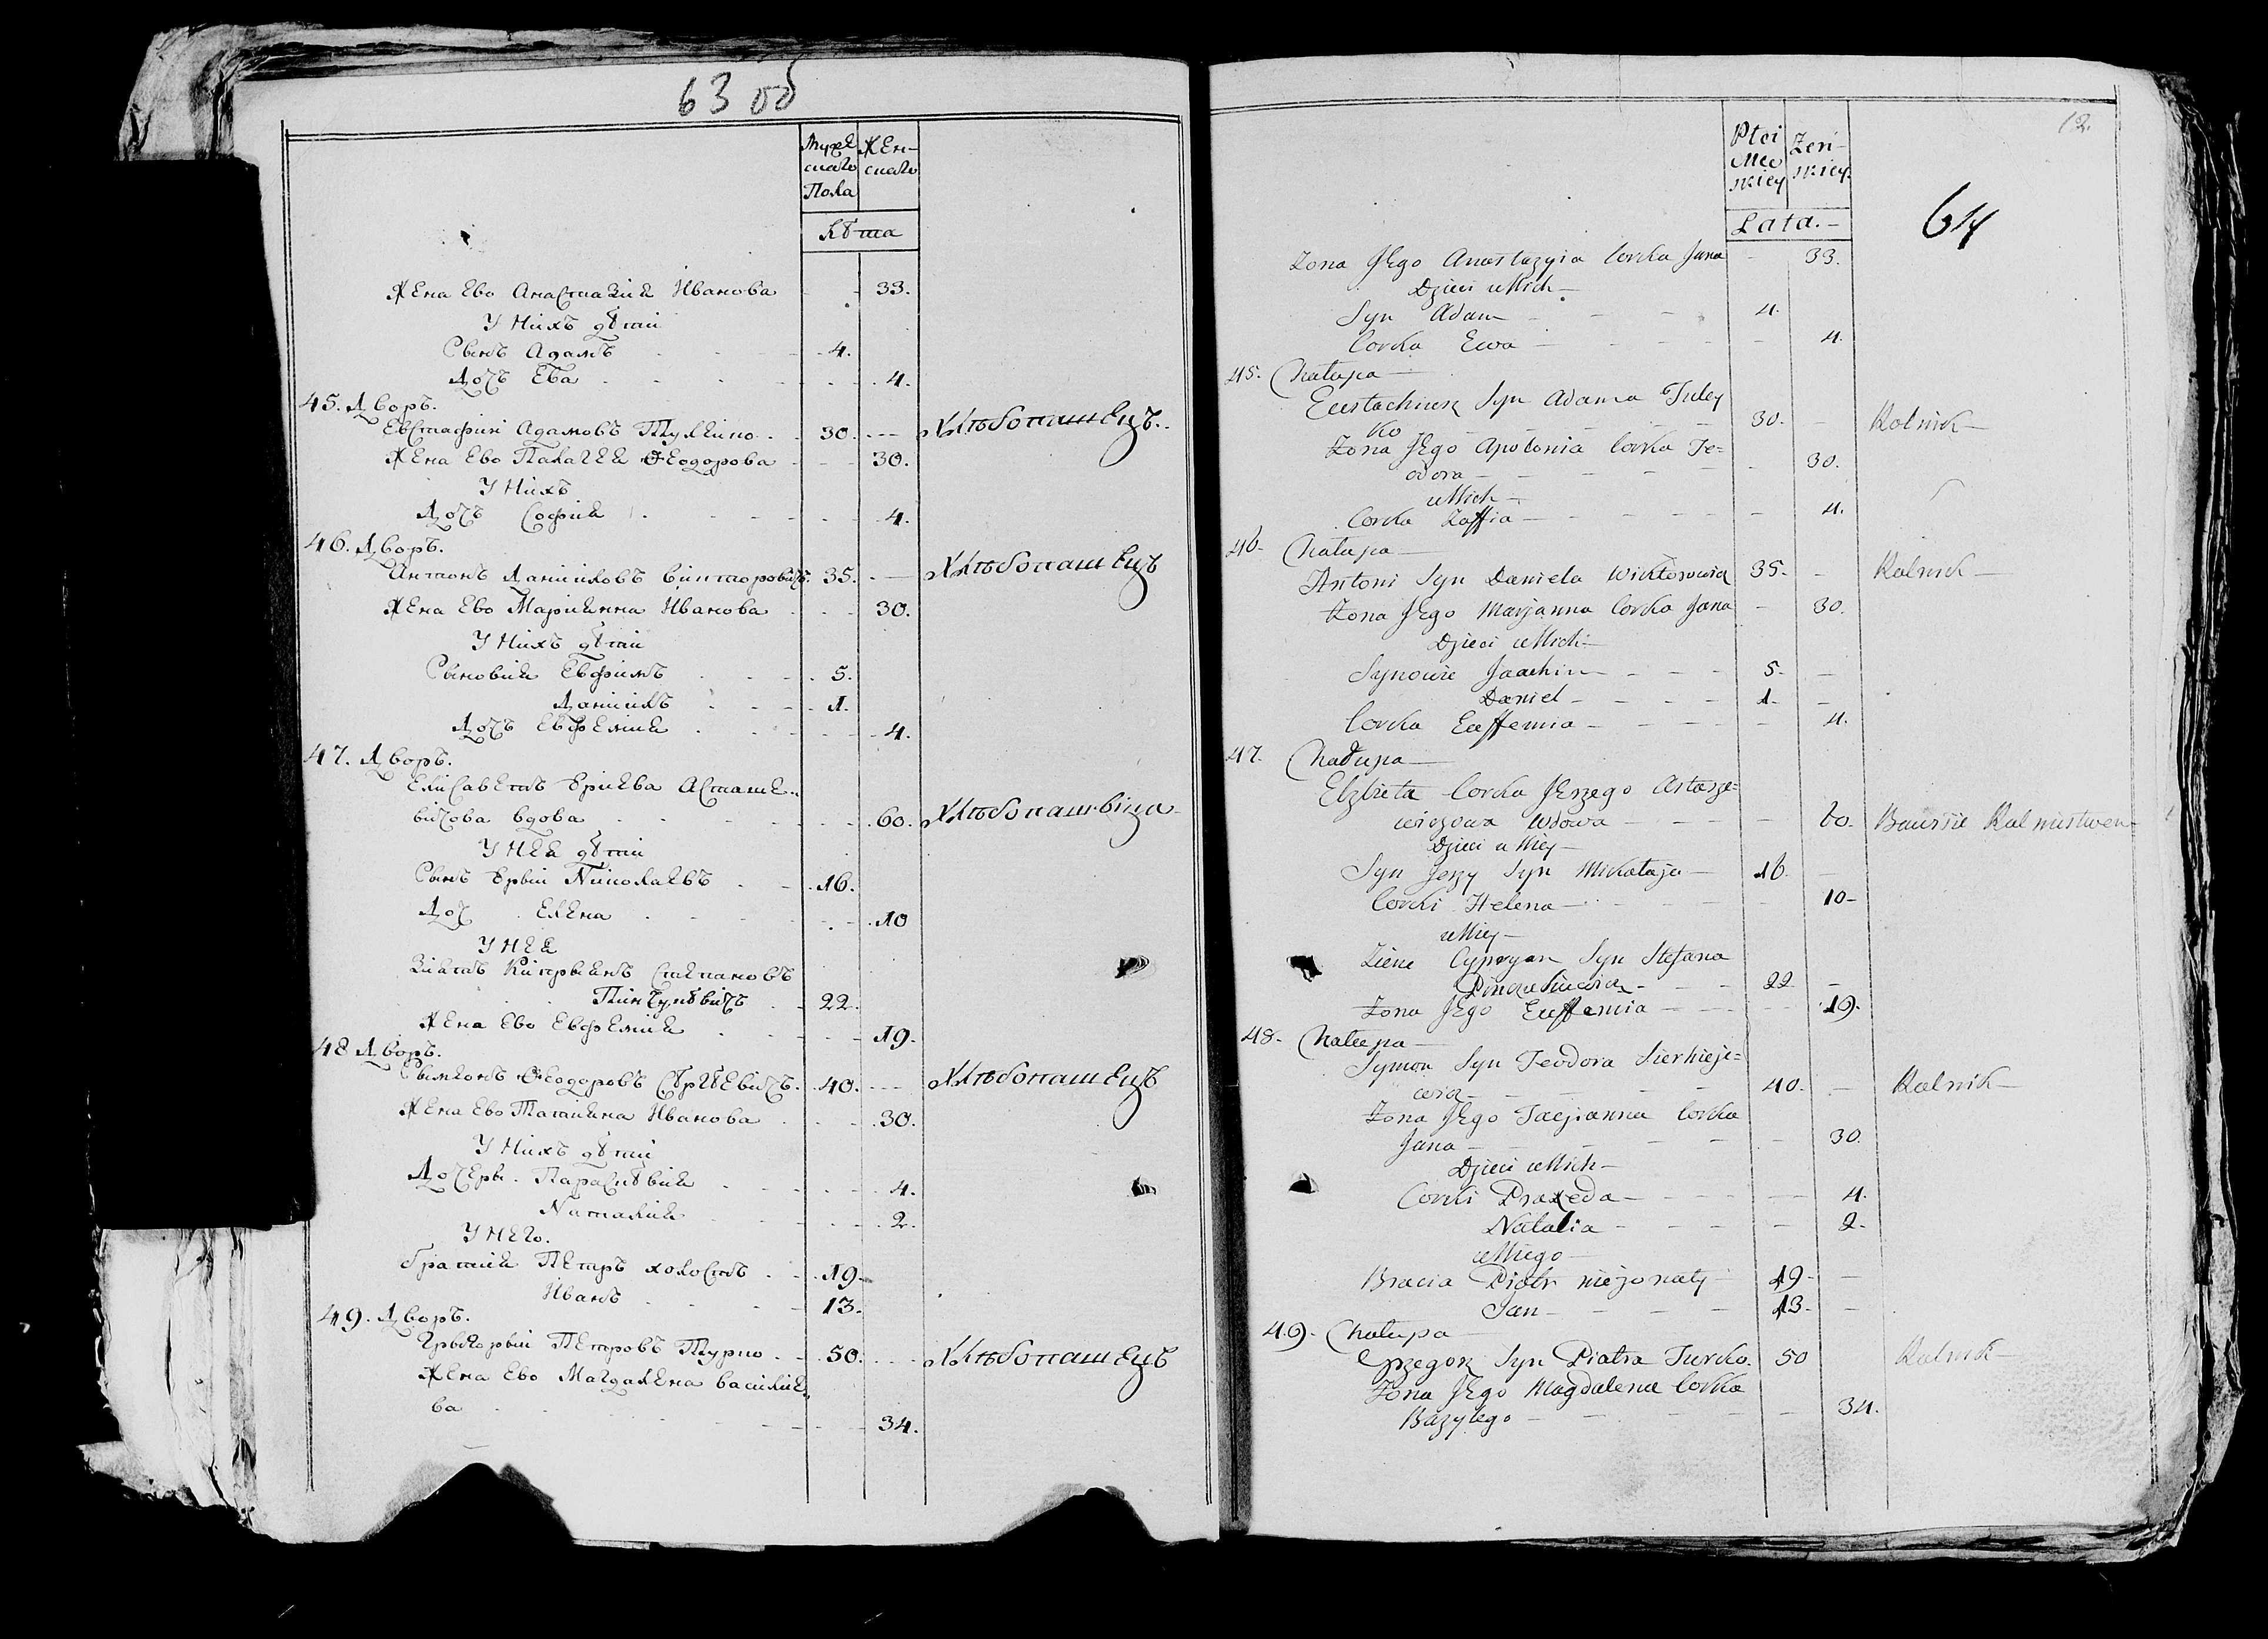 63 об
Мужескаго Пола
Женскаго
Лѣта
Жена Ево Анастазия Иванова 33.
У нихъ дѣти
Сынъ Адамъ 4.
Дочь Ева 4.
45. Дворъ.
Евстафий Адамовъ Тулейко 30. Хлѣбопашецъ.
Жена Ево Палагея Феодорова 30.
У нихъ
Дочь София 4.
46. Дворъ.
Антонъ Даниловъ Викторовичъ. 35. Хлѣбопашецъ
Жена Ево Марианна Иванова 30.
У нихъ дѣти
Сыновия Евфимъ 5.
Данилъ 1.
Дочь Евфемия 4.
47. Дворъ.
Елисаветъ Юриева Асташе-
вичова вдова 60. Хлѣбопашвица
У нея дѣти
Сынъ Юрьи Николаевъ 16.
Доч Елена 10
У нея
Зиать Киприянъ Степановъ
22.
Жена Ево Евфемия 19.
48 Дворъ.
Сымионъ Феодоровъ Сѣргѣевичъ. 40. Хлѣбопашецъ
Жена Ево Татиана Иванова 30.
У нихъ дѣти
Дочерьи. Параскѣвия 4.
Наталия 2.
У него.
братия Петръ холостъ 19.
Иванъ 13.
49. Дворъ.
Григорьи Петровъ Турко 50. Хлѣбопашецъ
Жена Ево Магдалена Василие-
ва 34.
12.
64
Płci Męskiey
Żeńskiey.
Lata.
Żona Jego Anastazyia Corka Jana 33.
Dzieci u Nich
Syn Adam 4.
Corka Ewa 4.
45. Chałupa
Eustachiusz Syn Adama Tuley
ko 30. Rolnik
Żona Jego Apolonia Corka Te=
odora 30.
u Nich
Corka Zoffia 4.
46. Chałupa
Antoni Syn Daniela Wichtorowicz 35. Rolnik
Żona Jego Marjanna Corka Jana 30.
Dzieci u Nich
Synowie Joachim 5.
Daniel 1.
Corka Euffemia 4.
47. Chałupa
Elzbieta Corka Jerzego Astasze=
wiczowa Wdowa 60. Bawi sie Rolnictwem
Dzieci u Niey
Syn Jerzy Syn Mikołaja 16.
Corki Helena 10
u Niey
Zięć Cypryan Syn Stefana
22
Żona Jego Eufemia 19.
48. Chałupa
Symon Syn Teodora Sierhieje=
wicz 40. Rolnik
Żona Jego Tacjanna Corka
Jana 30.
Dzieci u Nich
Corki Praxeda 4.
Natalia 2.
u Niego
Bracia Piotr nieżonaty 19
Jan 13.
49. Chałupa
Grzegorz Syn Piotra Turko. 50 Rolnik
Żona Jego Magdalena Corka
Bazylego 34.